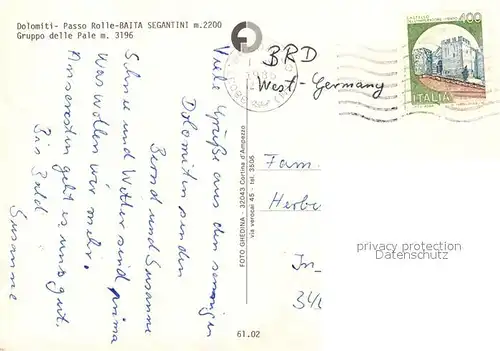 Dolomiti- Passo Rolle-BAITA SEGANTINI m.2200
Gruppo delle Pale m. 3196
Viele Grüße aus den sonnigen
Dolomiten senden
Bernd und Susanne
Schnee und Wetter sind prima
was wollen wir mehr.
Ansonsten geht es uns gut.
Bis Bald
Susanne
FOTO GHEDINA - 32043 Cortina d'Ampezzo
via verocai 45 - tel. 3506
61.02
BRD
West-Germany
400
ITALIA
Fam.
Herbe
privacy protection
DELCAMPE